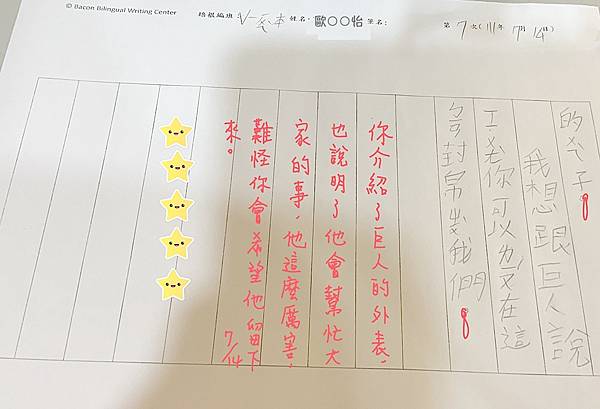 © Bacon Bilingual Writing Center 培根編班： 姓名：歐〇〇怡 筆名： 第 7 次(111年 7月 14日)
的子。
我想跟巨人說
你可以在這
我們。
你介紹了巨人的外表，
也說明了他會幫忙大
家的事，他這麼厲害，
難怪你會希望他留下
來。 7/14